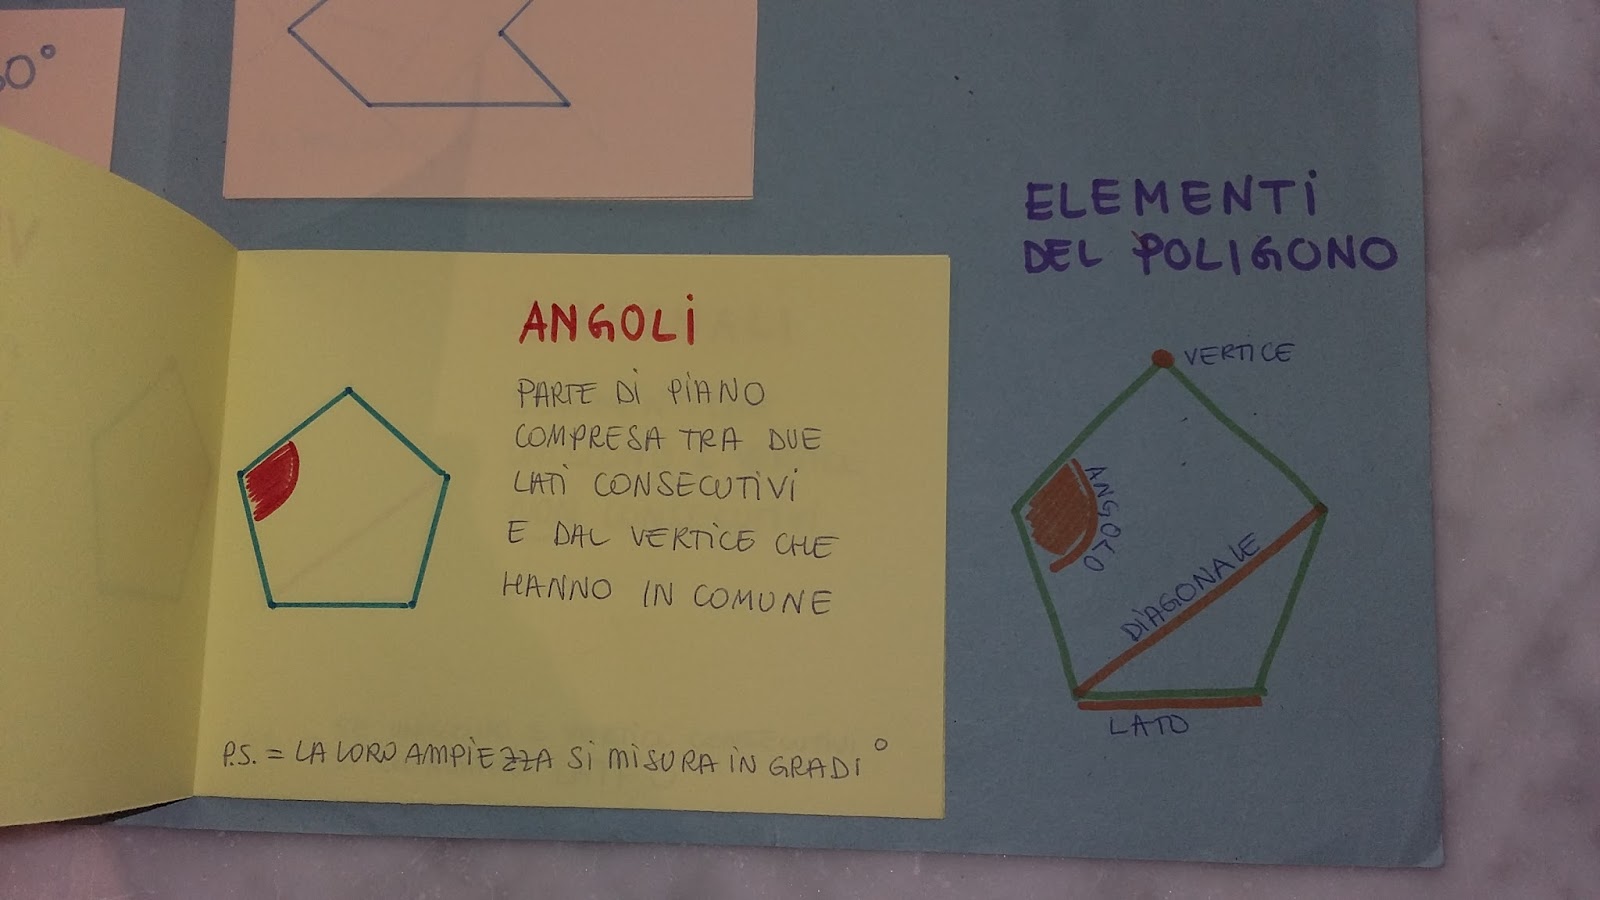 0°
ELEMENTI
DEL POLIGONO
ANGOLI
PARTE DI PIANO
COMPRESA TRA DUE
LATI CONSECUTIVI
E DAL VERTICE CHE
HANNO IN COMUNE
P.S. = LA LORO AMPIEZZA SI MISURA IN GRADI °
VERTICE
ANGOLO
DIAGONALE
LATO